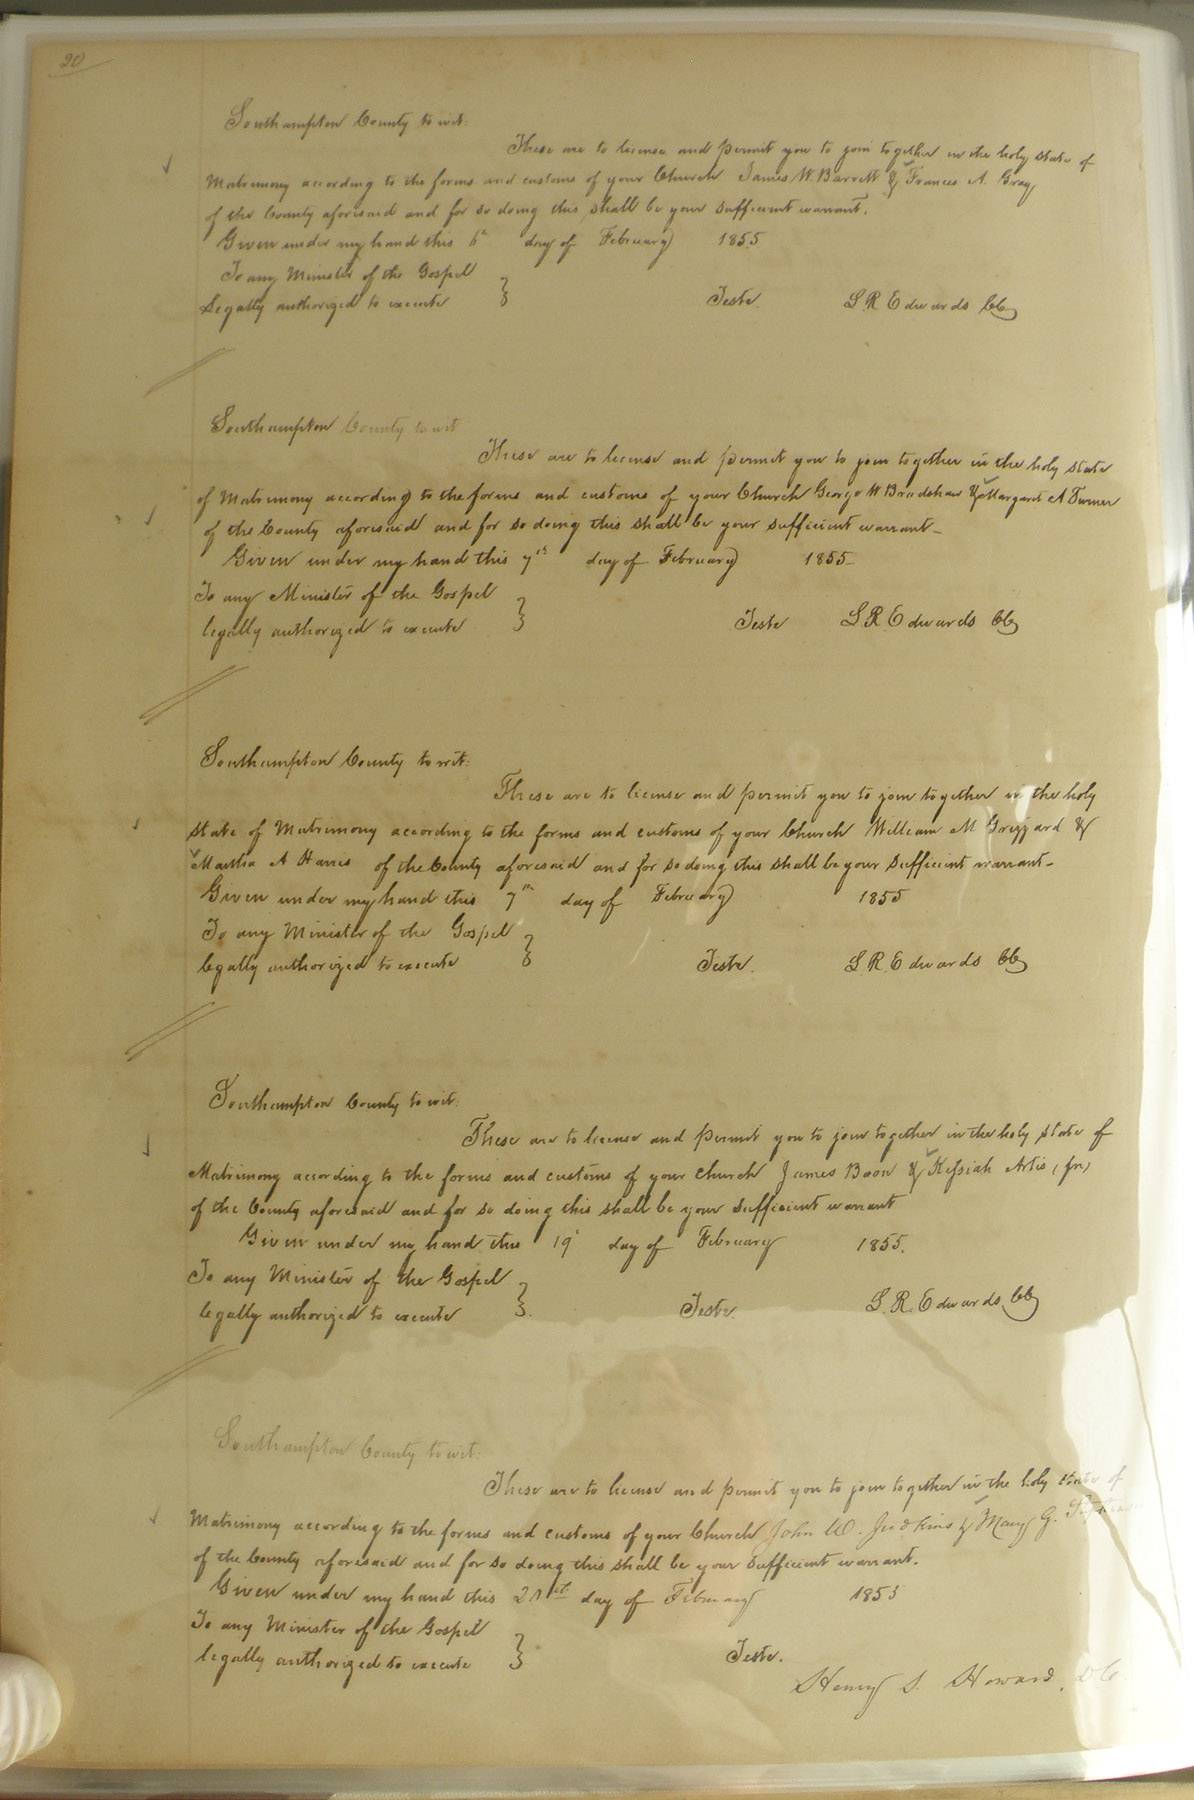 20
Southampton County to wit:
These are to license and permit you to join together in the holy state of
Matrimony according to the forms and customs of your Church James W. Barrett & Frances A. Gray
of the County aforesaid and for so doing this shall be your sufficient warrant.
Given under my hand this 6th day of February 1855
To any Minister of the Gospel
Legally authorized to execute } Teste. L. R. Edwards CC
Southampton County to wit
These are to license and permit you to join together in the holy state
of Matrimony according to the forms and customs of your Church George W Bradshaw & Margaret A Turner
of the County aforesaid and for so doing this shall be your sufficient warrant-
Given under my hand this 7th day of February 1855-
To any Minister of the Gospel
legally authorized to execute } Teste L. R. Edwards CC
Southampton County to wit:
These are to license and permit you to join together in the holy
state of Matrimony according to the forms and customs of your Church William M Grizzard &
Martha A Harris of the County aforesaid and for so doing this shall be your sufficient warrant-
Given under my hand this 7th day of February 1855
To any Minister of the Gospel
legally authorized to execute } Teste. L. R. Edwards CC
Southampton County to wit:
These are to license and permit you to join together in the holy state of
Matrimony according to the forms and customs of your Church James Boon & Kessiah Artis (fn)
of the County aforesaid and for so doing this shall be your sufficient warrant
Given under my hand this 19 day of February 1855.
To any Minister of the Gospel
legally authorized to execute } Teste. L. R. Edwards CC
Southampton County to wit:
These are to license and permit you to join together in the holy state of
Matrimony according to the forms and customs of your Church John W. Judkins & Mary G.
of the County aforesaid and for so doing this shall be your sufficient warrant.
Given under my hand this 21st day of February 1855
To any Minister of the Gospel
legally authorized to execute } Teste.
Henry S. Howard, DC.